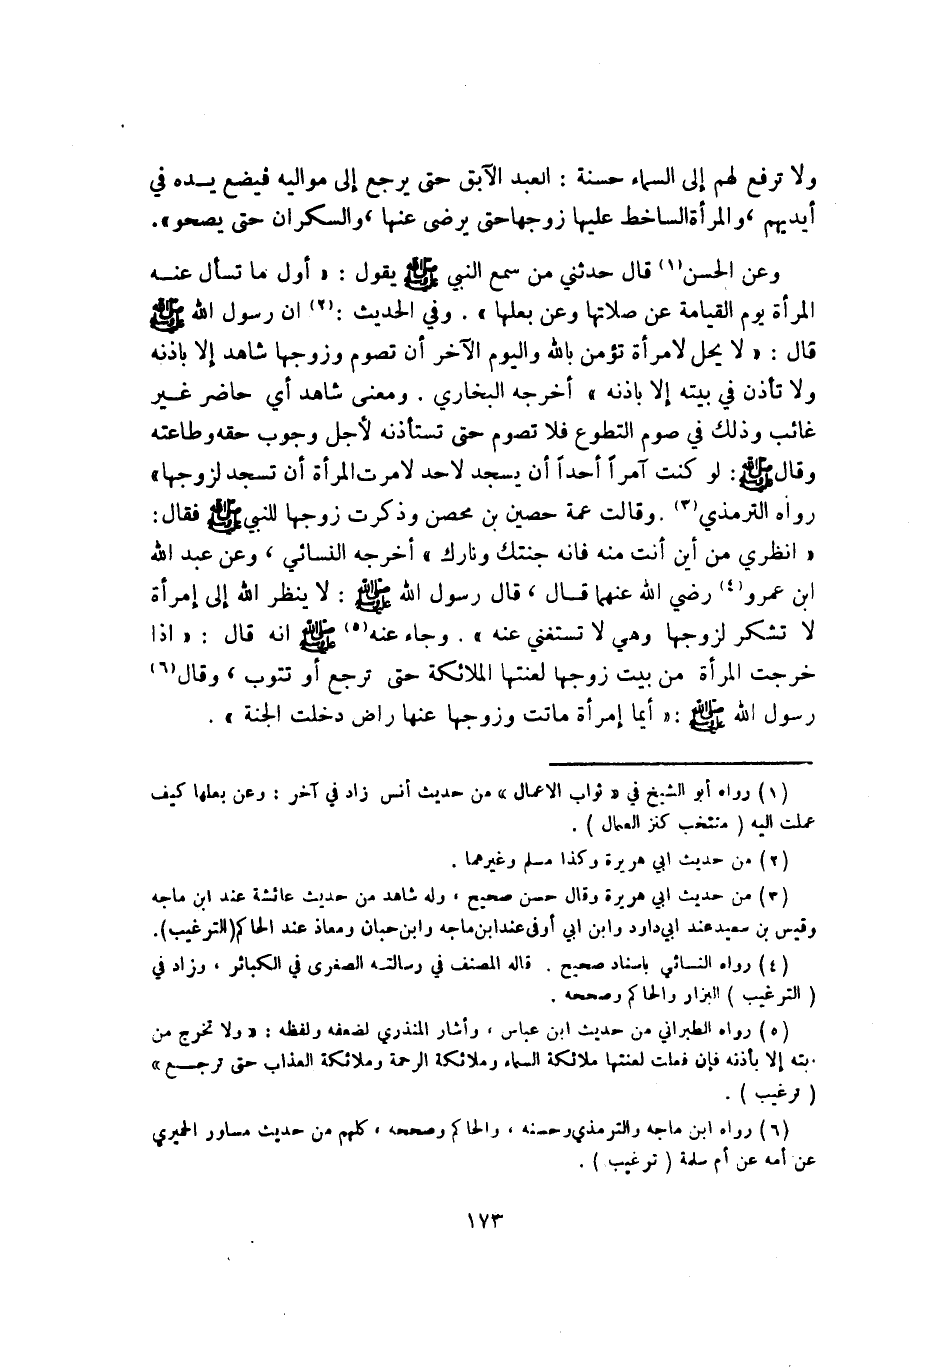 ولا ترفع لهم إلى السماء حسنة : العبد الآبق حتى يرجع إلى مواليه فيضع يــده في
أيديهم ، والمرأة الساخط عليها زوجها حتى يرضى عنها ، والسكران حتى يصحو » .
وعن الحسن(١) قال حدثني من سمع النبي ﷺ يقول : « أول ما تسأل عنــه
المرأة يوم القيامة عن صلاتها وعن بعلها » . وفي الحديث :(٢) ان رسول الله ﷺ
قال : « لا يحل لامرأة تؤمن بالله واليوم الآخر أن تصوم وزوجها شاهد إلا باذنه
ولا تأذن في بيته إلا باذنه » أخرجه البخاري . ومعنى شاهد أي حاضر غــير
غائب وذلك في صوم التطوع فلا تصوم حتى تستأذنه لأجل وجوب حقه وطاعته
وقال ﷺ : لو كنت آمراً أحداً أن يسجد لاحد لامرت المرأة أن تسجد لزوجها»
رواه الترمذي(٣) . وقالت عمة حصين بن محصن وذكرت زوجها للنبي ﷺ فقال :
« انظري من أين أنت منه فانه جنتك ونارك » أخرجه النسائي ، وعن عبد الله
ابن عمرو(٤) رضي الله عنهما قــال ، قال رسول الله ﷺ : لا ينظر الله إلى إمرأة
لا تشكر لزوجها وهي لا تستغني عنه » . وجاء عنه(٥) ﷺ انه قال : « اذا
خرجت المرأة من بيت زوجها لعنتها الملائكة حتى ترجع أو تتوب ، وقال(٦)
رسول الله ﷺ :« أيما إمرأة ماتت وزوجها عنها راض دخلت الجنة » .
(١) رواه أبو الشيخ في « ثواب الاعمال » من حديث أنس زاد في آخر : وعن بعلها كيف
عملت اليه ( منتخب كنز العمال ) .
(٢) من حديث ابي هريرة وكذا مسلم وغيرهما .
(٣) من حديث ابي هريرة وقال حسن صحيح ، وله شاهد من حديث عائشة عند ابن ماجه
وقيس بن سعيد عند ابي داود وابن ابي أوفى عند ابن ماجه وابن حبان ومعاذ عند الحاكم (الترغيب).
(٤) رواه النسائي باسناد صحيح . قاله المصنف في رسالتــه الصغرى في الكبائر ، وزاد في
( الترغيب ) البزار والحاكم وصححه .
(٥) رواه الطبراني من حديث ابن عباس ، وأشار المنذري لضعفه ولفظه : « ولا تخرج من
بيته إلا بأذنه فإن فعلت لعنتها ملائكة السماء وملائكة الرحمة وملائكة العذاب حتى ترجــع »
( ترغيب ) .
(٦) رواه ابن ماجه والترمذي وحسنه ، والحاكم وصححه ، كلهم من حديث مساور الحميري
عن أمه عن أم سلمة ( ترغيب ) .
١٧٣